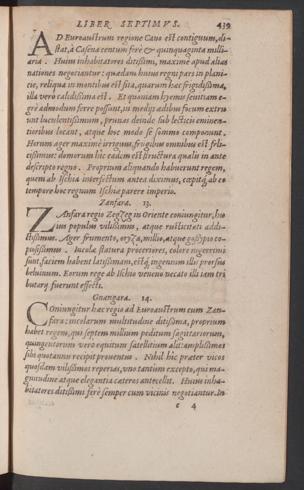 LIBER SEPTIMVS. 439
AD Euroaustrum regione Cano est contiguum, di-
stat, à Casena centum ferè & quinquaginta milli-
aria. Huius inhabitatores ditissimi, maxime apud alias
nationes negotiantur: quædam huius regni pars in plani-
cie, reliqua in montibus est sita, quarum hæc frigidissima,
illa verò calidissima est. Et quoniam hyemis sæuitiam e-
grè admodum ferre possunt, in medijs ædibus focum extru
unt luculentissimum, prunas deinde sub lecticis eminen-
tioribus locant, atque hoc modo se somno componunt.
Horum ager maximè irriguus, frugibus omnibus est feli-
cissimus: domorum hîc eadem est structura qualis in ante
descripto regno. Proprium aliquando habuerunt regem,
quem ab Ischia interfectum antea diximus, captáq; ab eo
tempore hoc regnum Ischia parere imperio.
Zanfara. 13.
ZAnfara regio Zegzeg in Oriente coniungitur, hu-
ius populus vilissimus, atque rusticitati addi-
ctissimus. Ager frumento, oryza, milio, atque gossypio co-
piosissimus. Incolæ statura proceriores, colore nigerrimi
sunt, faciem habent latissimam, estq́; ingenium illis prorsus
beluinum. Eorum rege ab Ischio veneno necato illi iam tri
butarij fuerunt effecti.
Guangara. 14.
COniungitur hæc regio ad Euroaustrum cum Zan-
fara: incolarum multitudine ditissima, proprium
habet regem, qui septem millium peditum sagittariorum,
quingentorum verò equitum satellitium alit: amplissimos
sibi quotannis recipit prouentus. Nihil hîc præter vicos
quosdam vilissimos reperias, vno tantùm excepto, qui ma-
gnitudine atque elegantia cæteros antecellit. Huius inha-
bitatores ditissimi ferè semper cum vicinis negotiantur. In
e 4